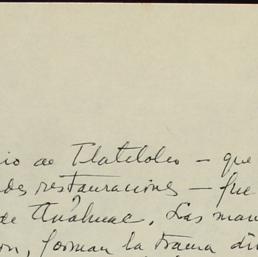 io de Tlatelolco — que
des restauraciones — fue
de Anáhuac. Las man
on, forman la trama di